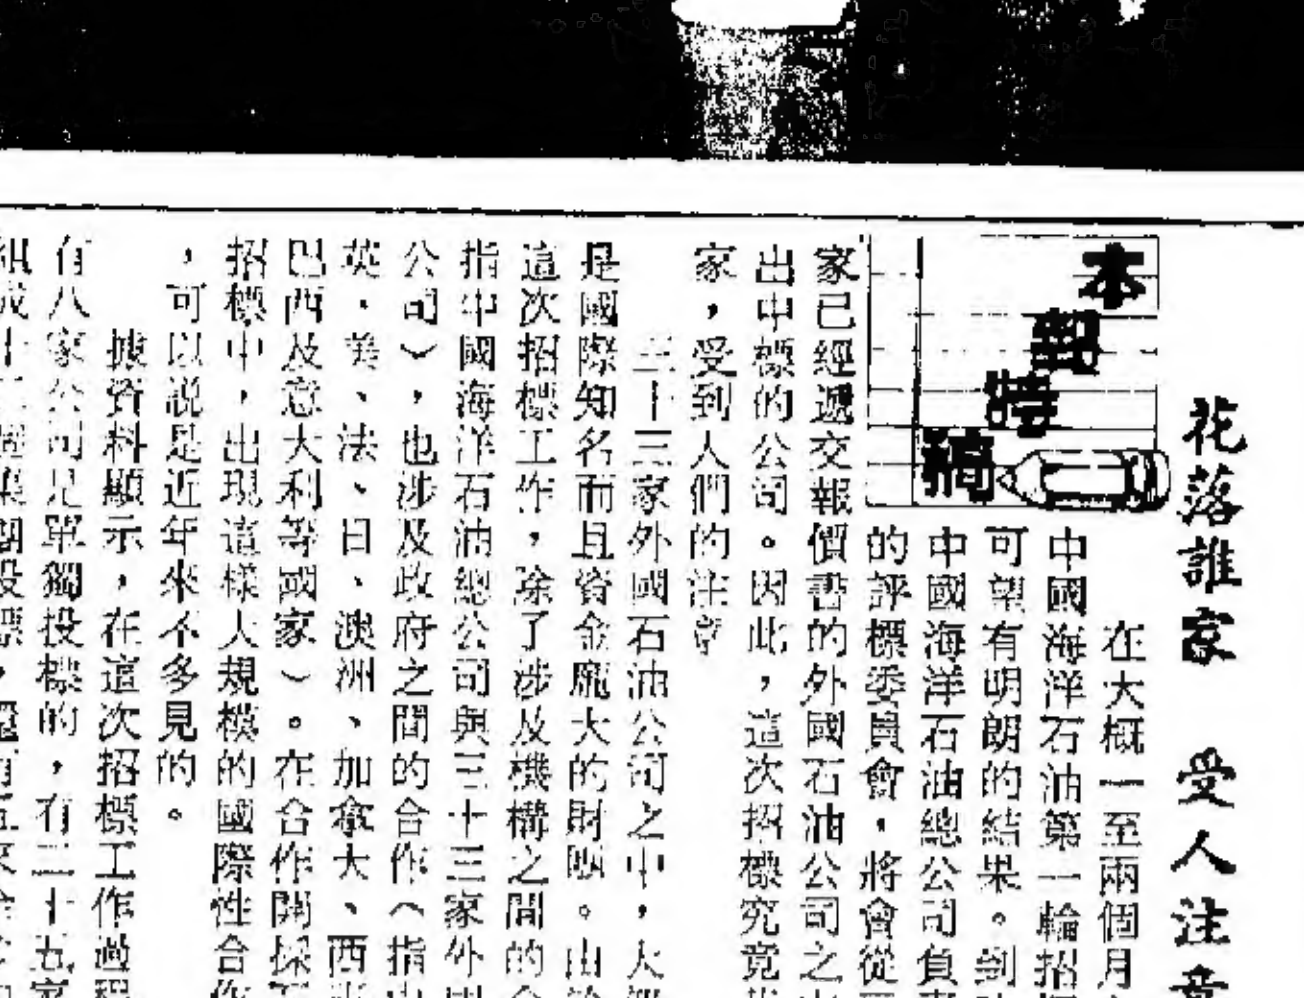 花落誰家 受人注意
本報特稿
在大概一至兩個月
中國海洋石油第一輪招
可望有明朗的結果。到
中國海洋石油總公司負責
的評標委員會，將會從
家已經遞交報價書的外國石油公司之
出中標的公司。因此，這次招標究竟
家，受到人們的注意
三十三家外國石油公司之中，大
是國際知名而且資金龐大的財團。由於
這次招標工作，除了涉及機構之間的合
指中國海洋石油總公司與三十三家外國
公司），也涉及政府之間的合作（指中
英、美、法、日、澳洲、加拿大、西
巴西及意大利等國家）。在合作開採
招標中，出現這樣大規模的國際性合作
，可以説是近年來不多見的。
據資料顯示，在這次招標工作過程
有八家公司是單獨投標的，有二十五家
組成十 集團投標，還有五